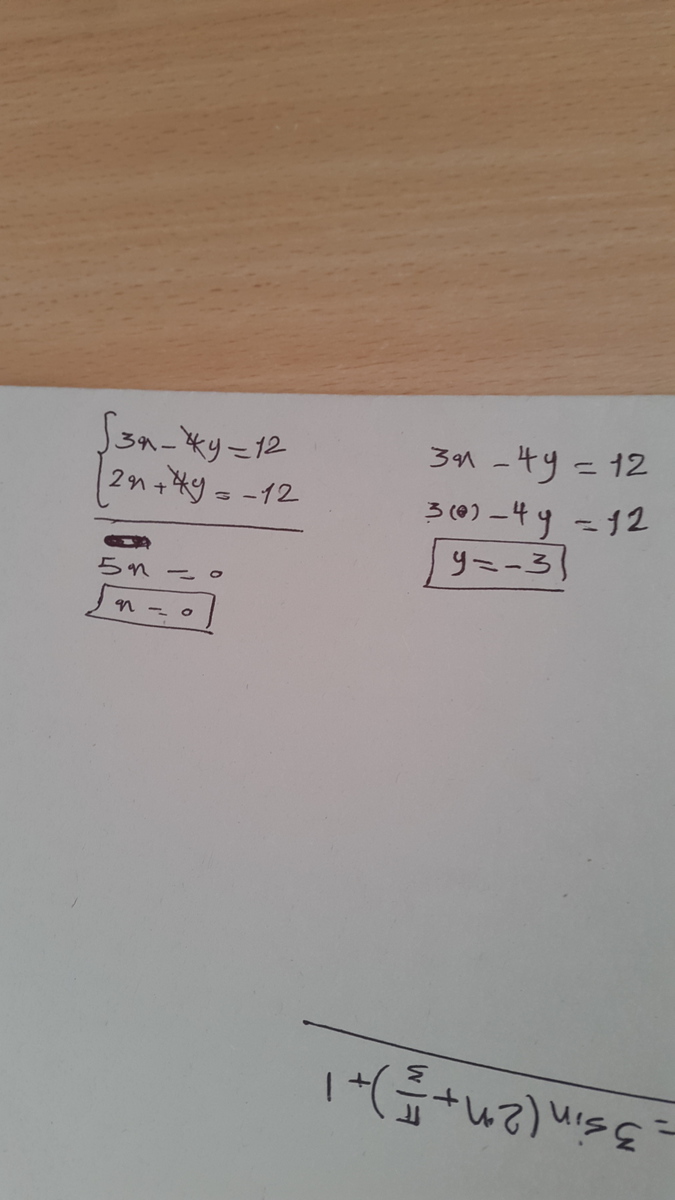 3x - 4y = 12
2x + 4y = -12
5x = 0
x = 0
3x - 4y = 12
3(0) - 4y = 12
y = -3
= 3 sin(2x + π/3) + 1